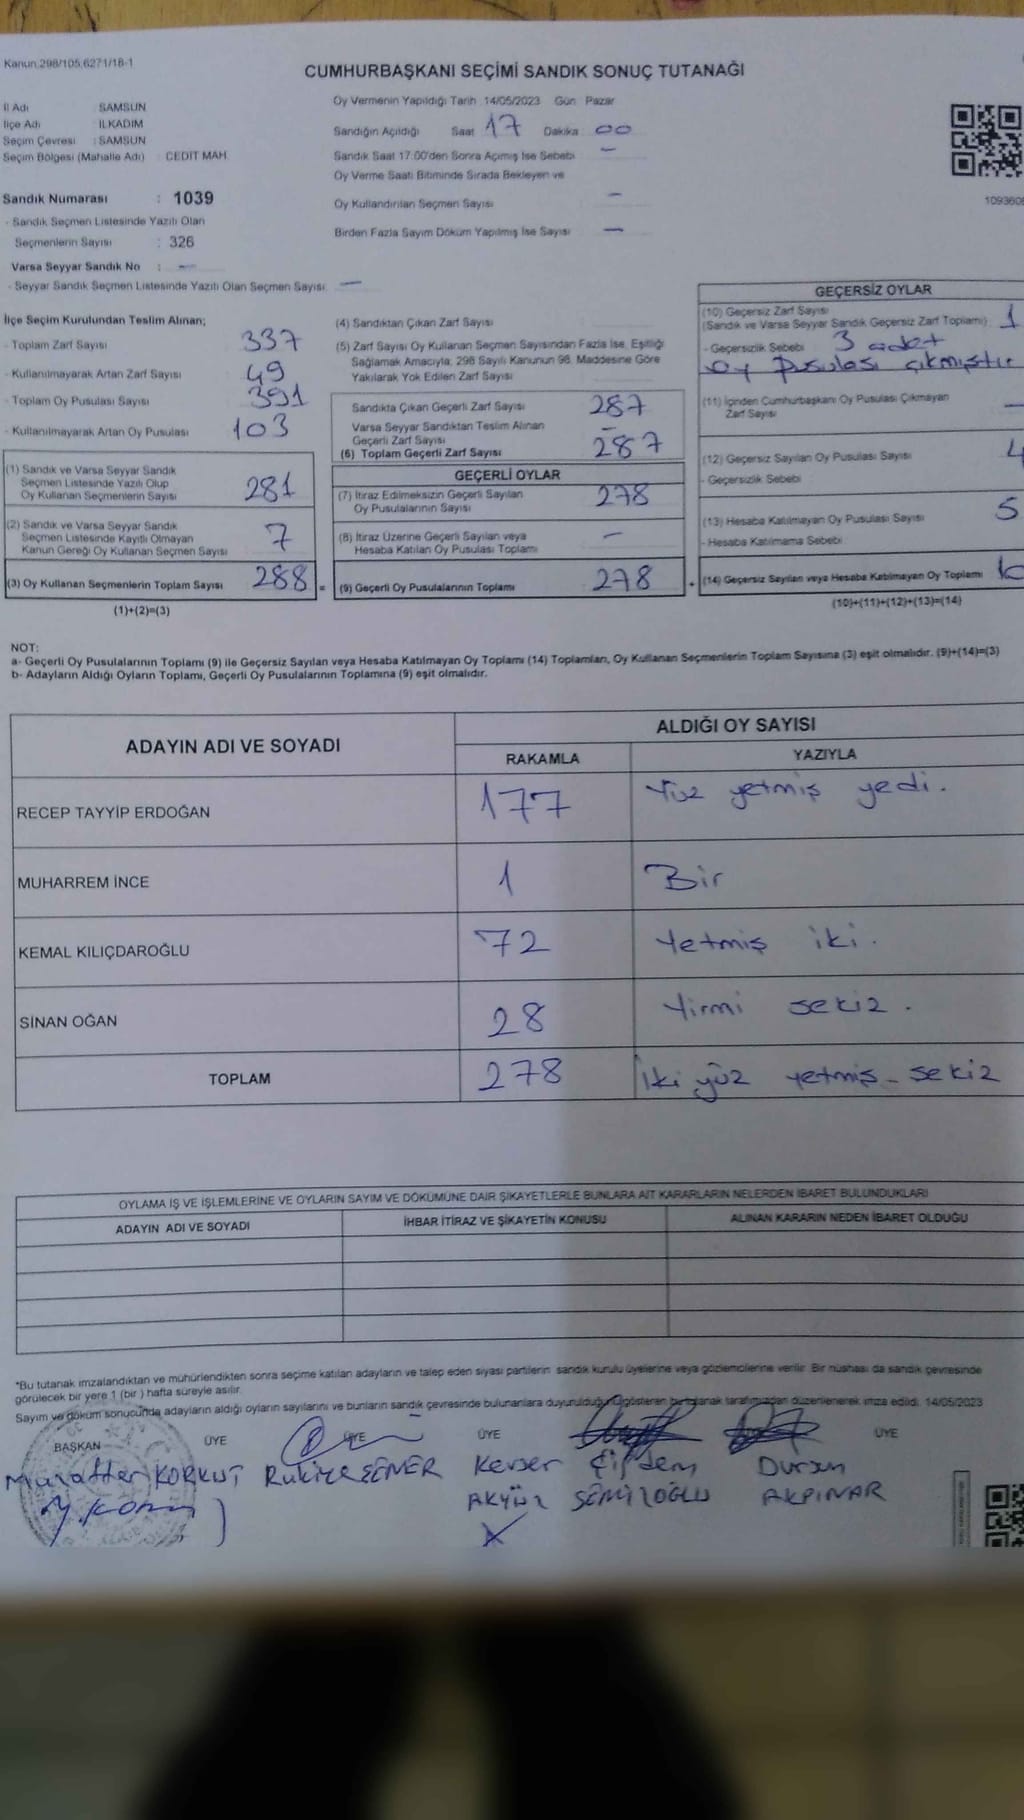 Kanun:298/105,6271/18-1
CUMHURBAŞKANI SEÇİMİ SANDIK SONUÇ TUTANAĞI
İl Adı : SAMSUN
İlçe Adı : İLKADIM
Seçim Çevresi : SAMSUN
Seçim Bölgesi (Mahalle Adı) : CEDİT MAH.
Sandık Numarası : 1039
- Sandık Seçmen Listesinde Yazılı Olan
Seçmenlerin Sayısı : 326
Varsa Seyyar Sandık No : —
- Seyyar Sandık Seçmen Listesinde Yazılı Olan Seçmen Sayısı —
Oy Vermenin Yapıldığı Tarih :14/05/2023 Gün: Pazar
Sandığın Açıldığı Saat 17 Dakika 00
Sandık Saat 17:00'den Sonra Açılmış İse Sebebi —
Oy Verme Saati Bitiminde Sırada Bekleyen ve
Oy Kullandırılan Seçmen Sayısı —
Birden Fazla Sayım Döküm Yapılmış İse Sayısı —
İlçe Seçim Kurulundan Teslim Alınan;
- Toplam Zarf Sayısı 337
- Kullanılmayarak Artan Zarf Sayısı 49
- Toplam Oy Pusulası Sayısı 391
- Kullanılmayarak Artan Oy Pusulası 103
(1) Sandık ve Varsa Seyyar Sandık
Seçmen Listesinde Yazılı Olup
Oy Kullanan Seçmenlerin Sayısı 281
(2) Sandık ve Varsa Seyyar Sandık
Seçmen Listesinde Kayıtlı Olmayan
Kanun Gereği Oy Kullanan Seçmen Sayısı 7
(3) Oy Kullanan Seçmenlerin Toplam Sayısı 288 =
(1)+(2)=(3)
(4) Sandıktan Çıkan Zarf Sayısı
(5) Zarf Sayısı Oy Kullanan Seçmen Sayısından Fazla İse, Eşitliği
Sağlamak Amacıyla; 298 Sayılı Kanunun 98. Maddesine Göre
Yakılarak Yok Edilen Zarf Sayısı
Sandıkta Çıkan Geçerli Zarf Sayısı 287
Varsa Seyyar Sandıktan Teslim Alınan
Geçerli Zarf Sayısı —
(6) Toplam Geçerli Zarf Sayısı 287
GEÇERLİ OYLAR
(7) İtiraz Edilmeksizin Geçerli Sayılan
Oy Pusulalarının Sayısı 278
(8) İtiraz Üzerine Geçerli Sayılan veya
Hesaba Katılan Oy Pusulası Toplamı —
(9) Geçerli Oy Pusulalarının Toplamı 278 +
GEÇERSİZ OYLAR
(10) Geçersiz Zarf Sayısı
(Sandık ve Varsa Seyyar Sandık Geçersiz Zarf Toplamı) 1
- Geçersizlik Sebebi 3 adet
oy pusulası çıkmıştır
(11) İçinden Cumhurbaşkanı Oy Pusulası Çıkmayan
Zarf Sayısı —
(12) Geçersiz Sayılan Oy Pusulası Sayısı 4
- Geçersizlik Sebebi
(13) Hesaba Katılmayan Oy Pusulası Sayısı 5
- Hesaba Katılmama Sebebi
(14) Geçersiz Sayılan veya Hesaba Katılmayan Oy Toplamı
(10)+(11)+(12)+(13)=(14)
NOT:
a- Geçerli Oy Pusulalarının Toplamı (9) ile Geçersiz Sayılan veya Hesaba Katılmayan Oy Toplamı (14) Toplamları, Oy Kullanan Seçmenlerin Toplam Sayısına (3) eşit olmalıdır. (9)+(14)=(3)
b- Adayların Aldığı Oyların Toplamı, Geçerli Oy Pusulalarının Toplamına (9) eşit olmalıdır.
ADAYIN ADI VE SOYADI ALDIĞI OY SAYISI
RAKAMLA YAZIYLA
RECEP TAYYİP ERDOĞAN 177 Yüz yetmiş yedi.
MUHARREM İNCE 1 Bir
KEMAL KILIÇDAROĞLU 72 Yetmiş iki.
SİNAN OĞAN 28 Yirmi sekiz.
TOPLAM 278 İki yüz yetmiş-sekiz
OYLAMA İŞ VE İŞLEMLERİNE VE OYLARIN SAYIM VE DÖKÜMÜNE DAİR ŞİKAYETLERLE BUNLARA AİT KARARLARIN NELERDEN İBARET BULUNDUKLARI
ADAYIN ADI VE SOYADI İHBAR İTİRAZ VE ŞİKAYETİN KONUSU ALINAN KARARIN NEDEN İBARET OLDUĞU
*Bu tutanak imzalandıktan ve mühürlendikten sonra seçime katılan adayların ve talep eden siyasi partilerin sandık kurulu üyelerine veya gözlemcilerine verilir. Bir nüshası da sandık çevresinde
görülecek bir yere 1 (bir) hafta süreyle asılır.
Sayım ve döküm sonucunda adayların aldığı oyların sayılarını ve bunların sandık çevresinde bulunanlara duyurulduğunu gösteren bu tutanak tarafımızdan düzenlenerek imza edildi. 14/05/2023
BAŞKAN ÜYE ÜYE ÜYE ÜYE
Muzaffer KORKUT Rukiye ŞENER Kevser Çiğdem Dursun
AKYÜZ SEMİZOĞLU AKPINAR